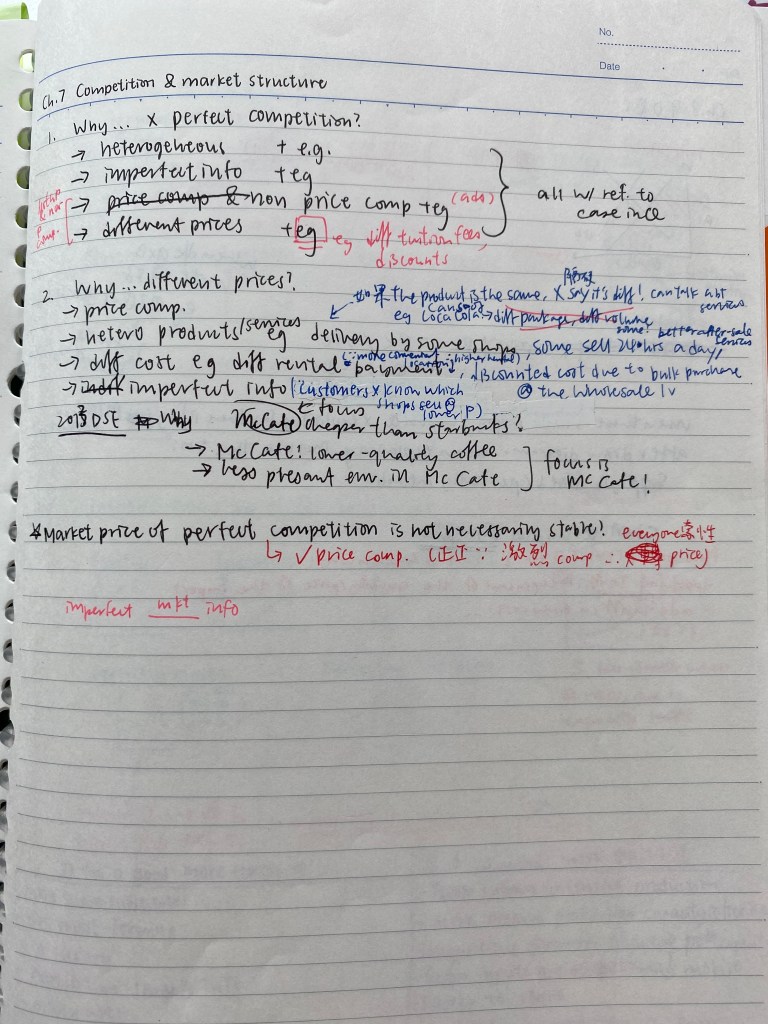 No.
Date
Ch.7 Competition & market structure
1. Why... x perfect competition?
→ heterogeneous + e.g.
→ imperfect info + eg
→ price comp & non price comp + eg (ads)
→ different prices + eg eg diff tuition fees, discounts
all w/ ref. to case in ce
2. Why... different prices?
→ price comp.
如果 the product is the same, X say it's diff! can talk abt services
eg Coca Cola → diff package, diff volume
→ hetero products/services eg delivery by some shops, some sell 24hrs a day, some: better after-sale services
→ diff cost eg diff rental payment, discounted cost due to bulk purchase @ the wholesale lv
→ imperfect info (customers X know which shops sell @ lower P)
DSE Why McCafe cheaper than starbucks?
← focus
→ McCafe: lower-quality coffee
→ less present env. in McCafe
focus is McCafe!
* Market price of perfect competition is not necessaring stable! everyone 性
↳ ✓ price comp. (正正 ∵ 激烈 comp ∴ price)
imperfect mkt info